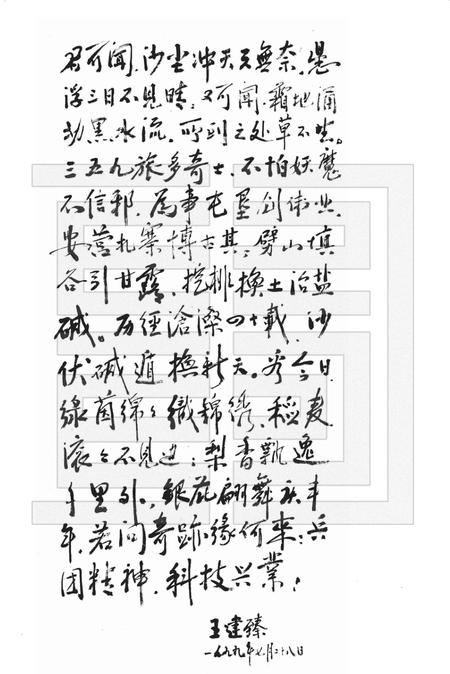 君可闻，沙尘冲天天无奈，悬
浮三日不见晴；又可闻，霜地涌
动黑水流，所到之处草不生。
三五九旅多奇士，不怕妖魔
不信邪，为事屯垦创伟业，
安营扎寨博古其；劈山填
谷引甘露，挖排换土治盐
碱。历经沧濲四十载，沙
伏碱遁换新天。看今日，
绿茵绵绵织锦绣，稻麦
滚滚不见边；梨香飘逸
千里外，银花翩舞庆丰
年。若问奇跡缘何来：兵
团精神，科技兴业！
王建臻
一九九九年七月二十八日